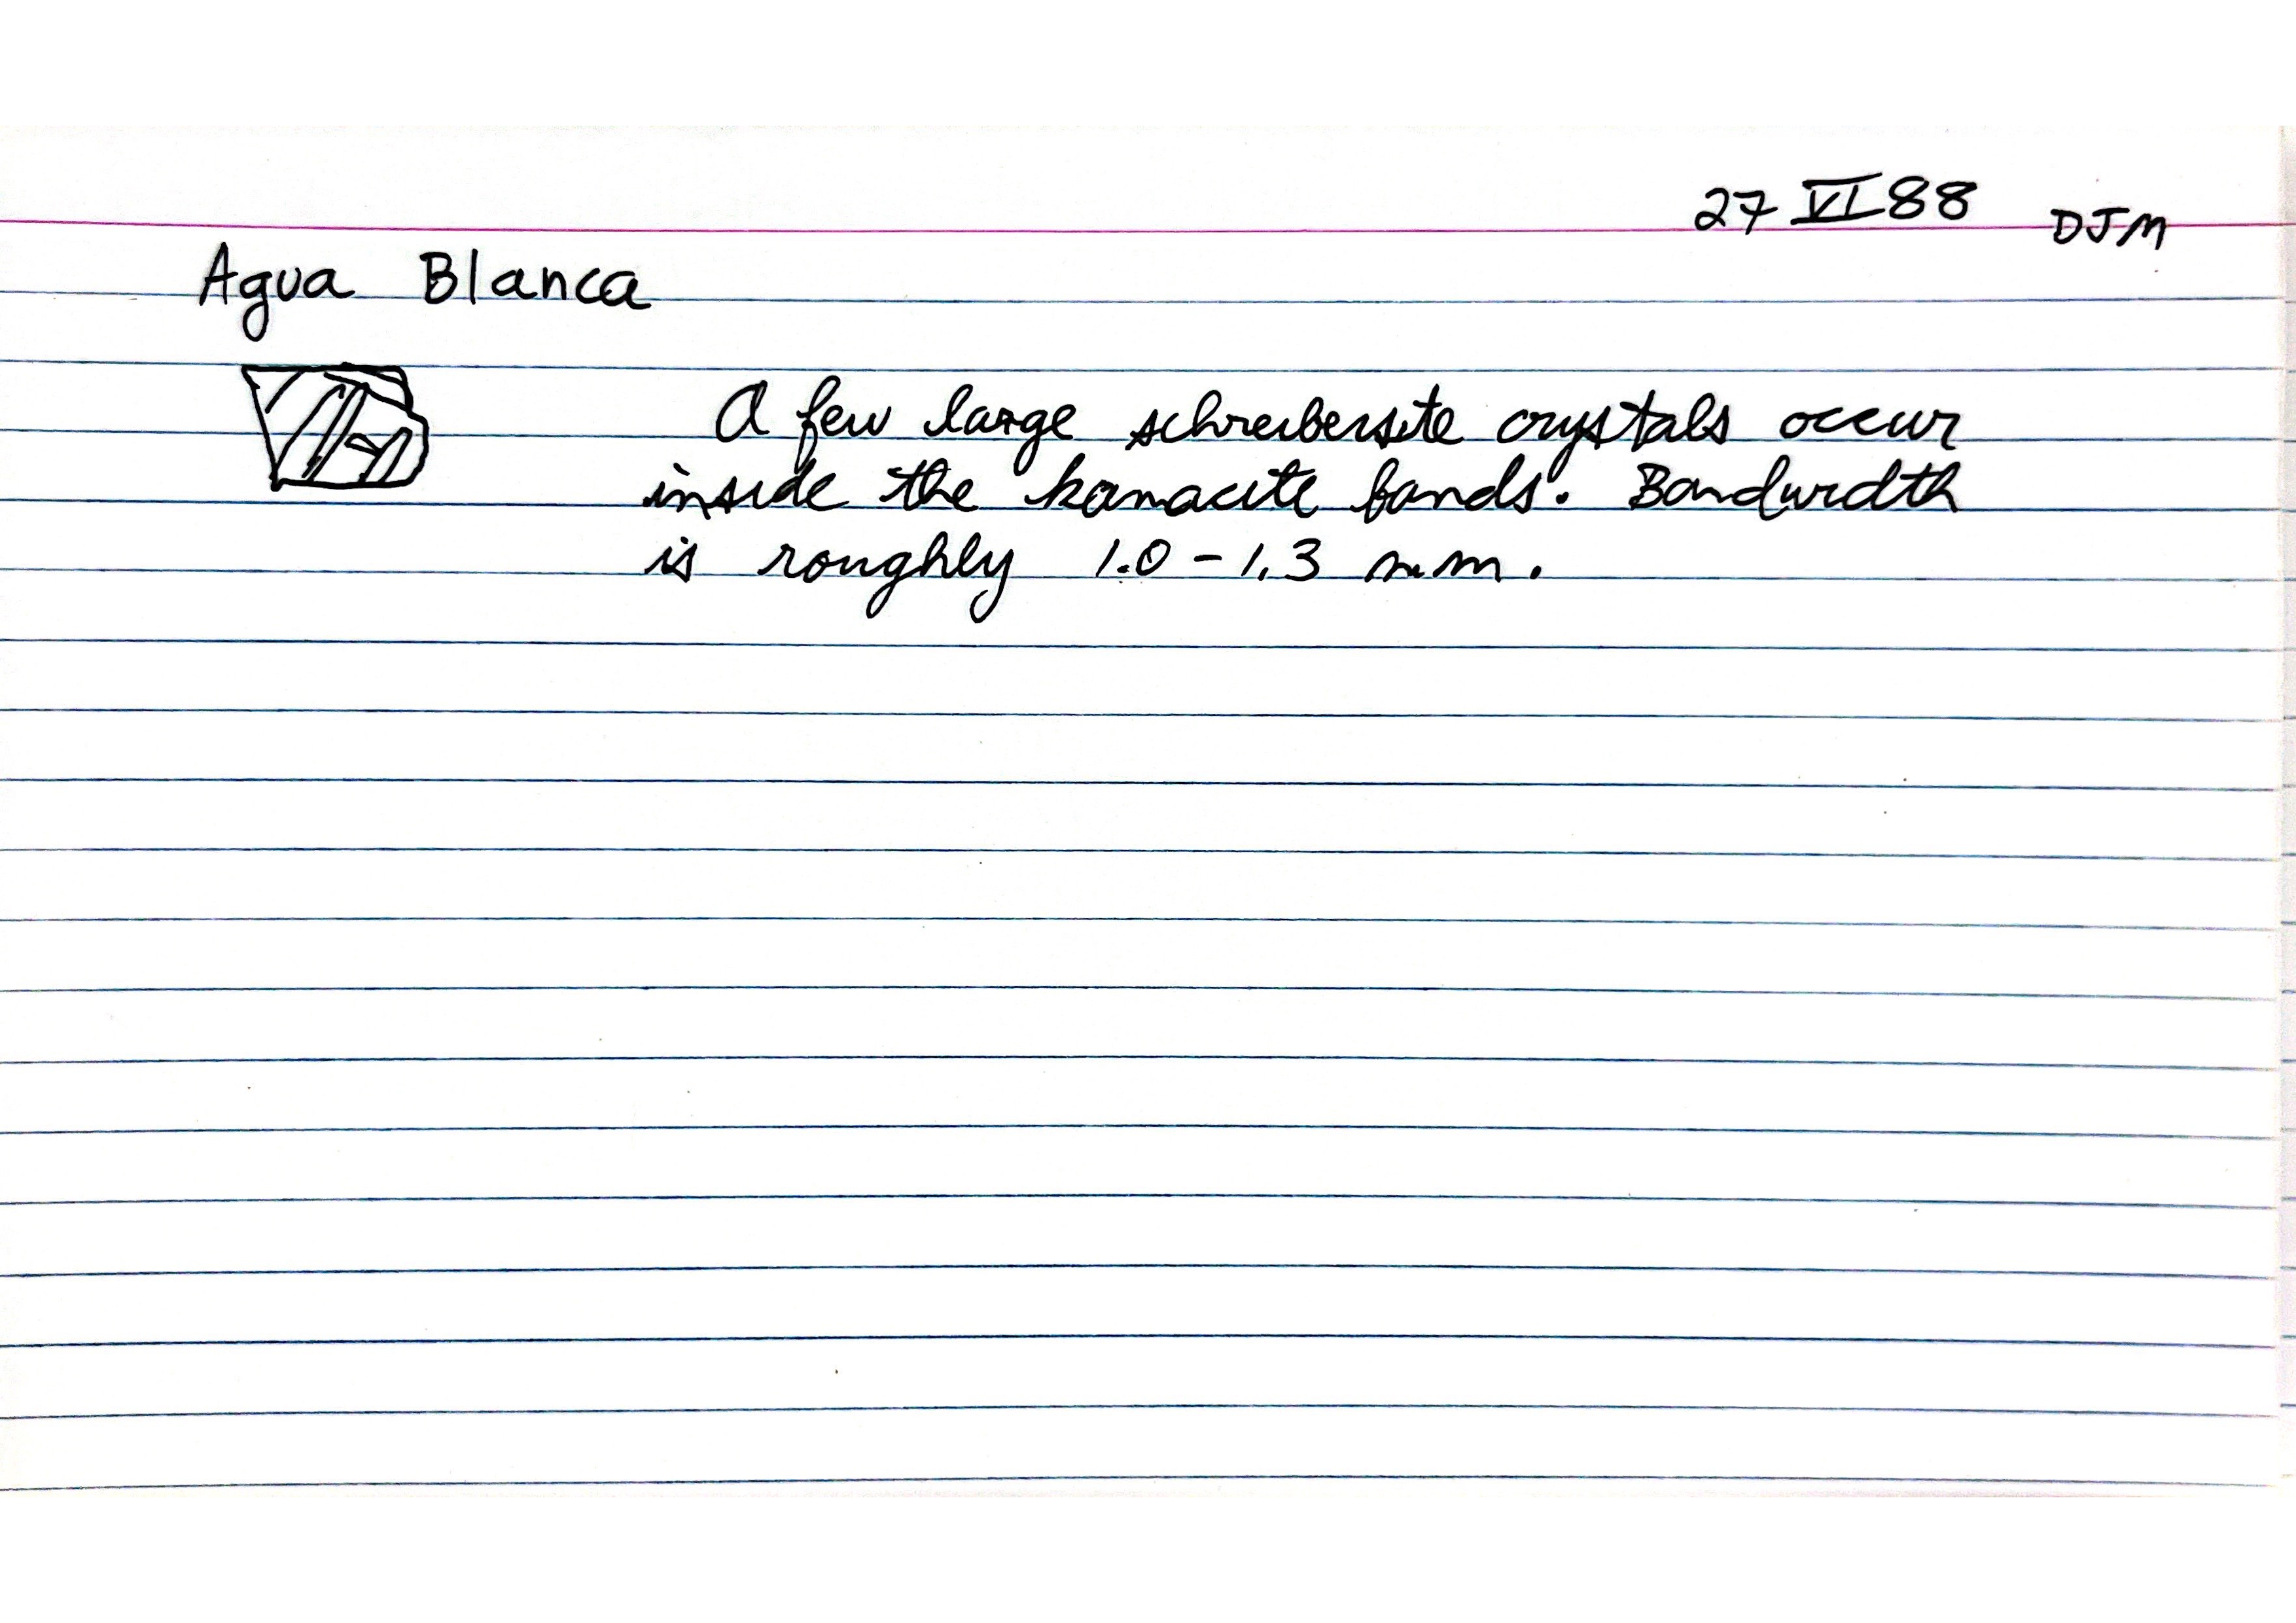 27 VI 88 DJM
Agua Blanca
A few large schreibersite crystals occur
inside the kamacite bands. Bandwidth
is roughly 1.0 - 1.3 mm.